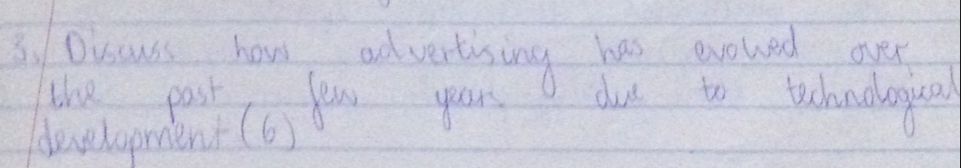 3. Discuss how advertising has evolved over
the past few years due to technological
development (6)